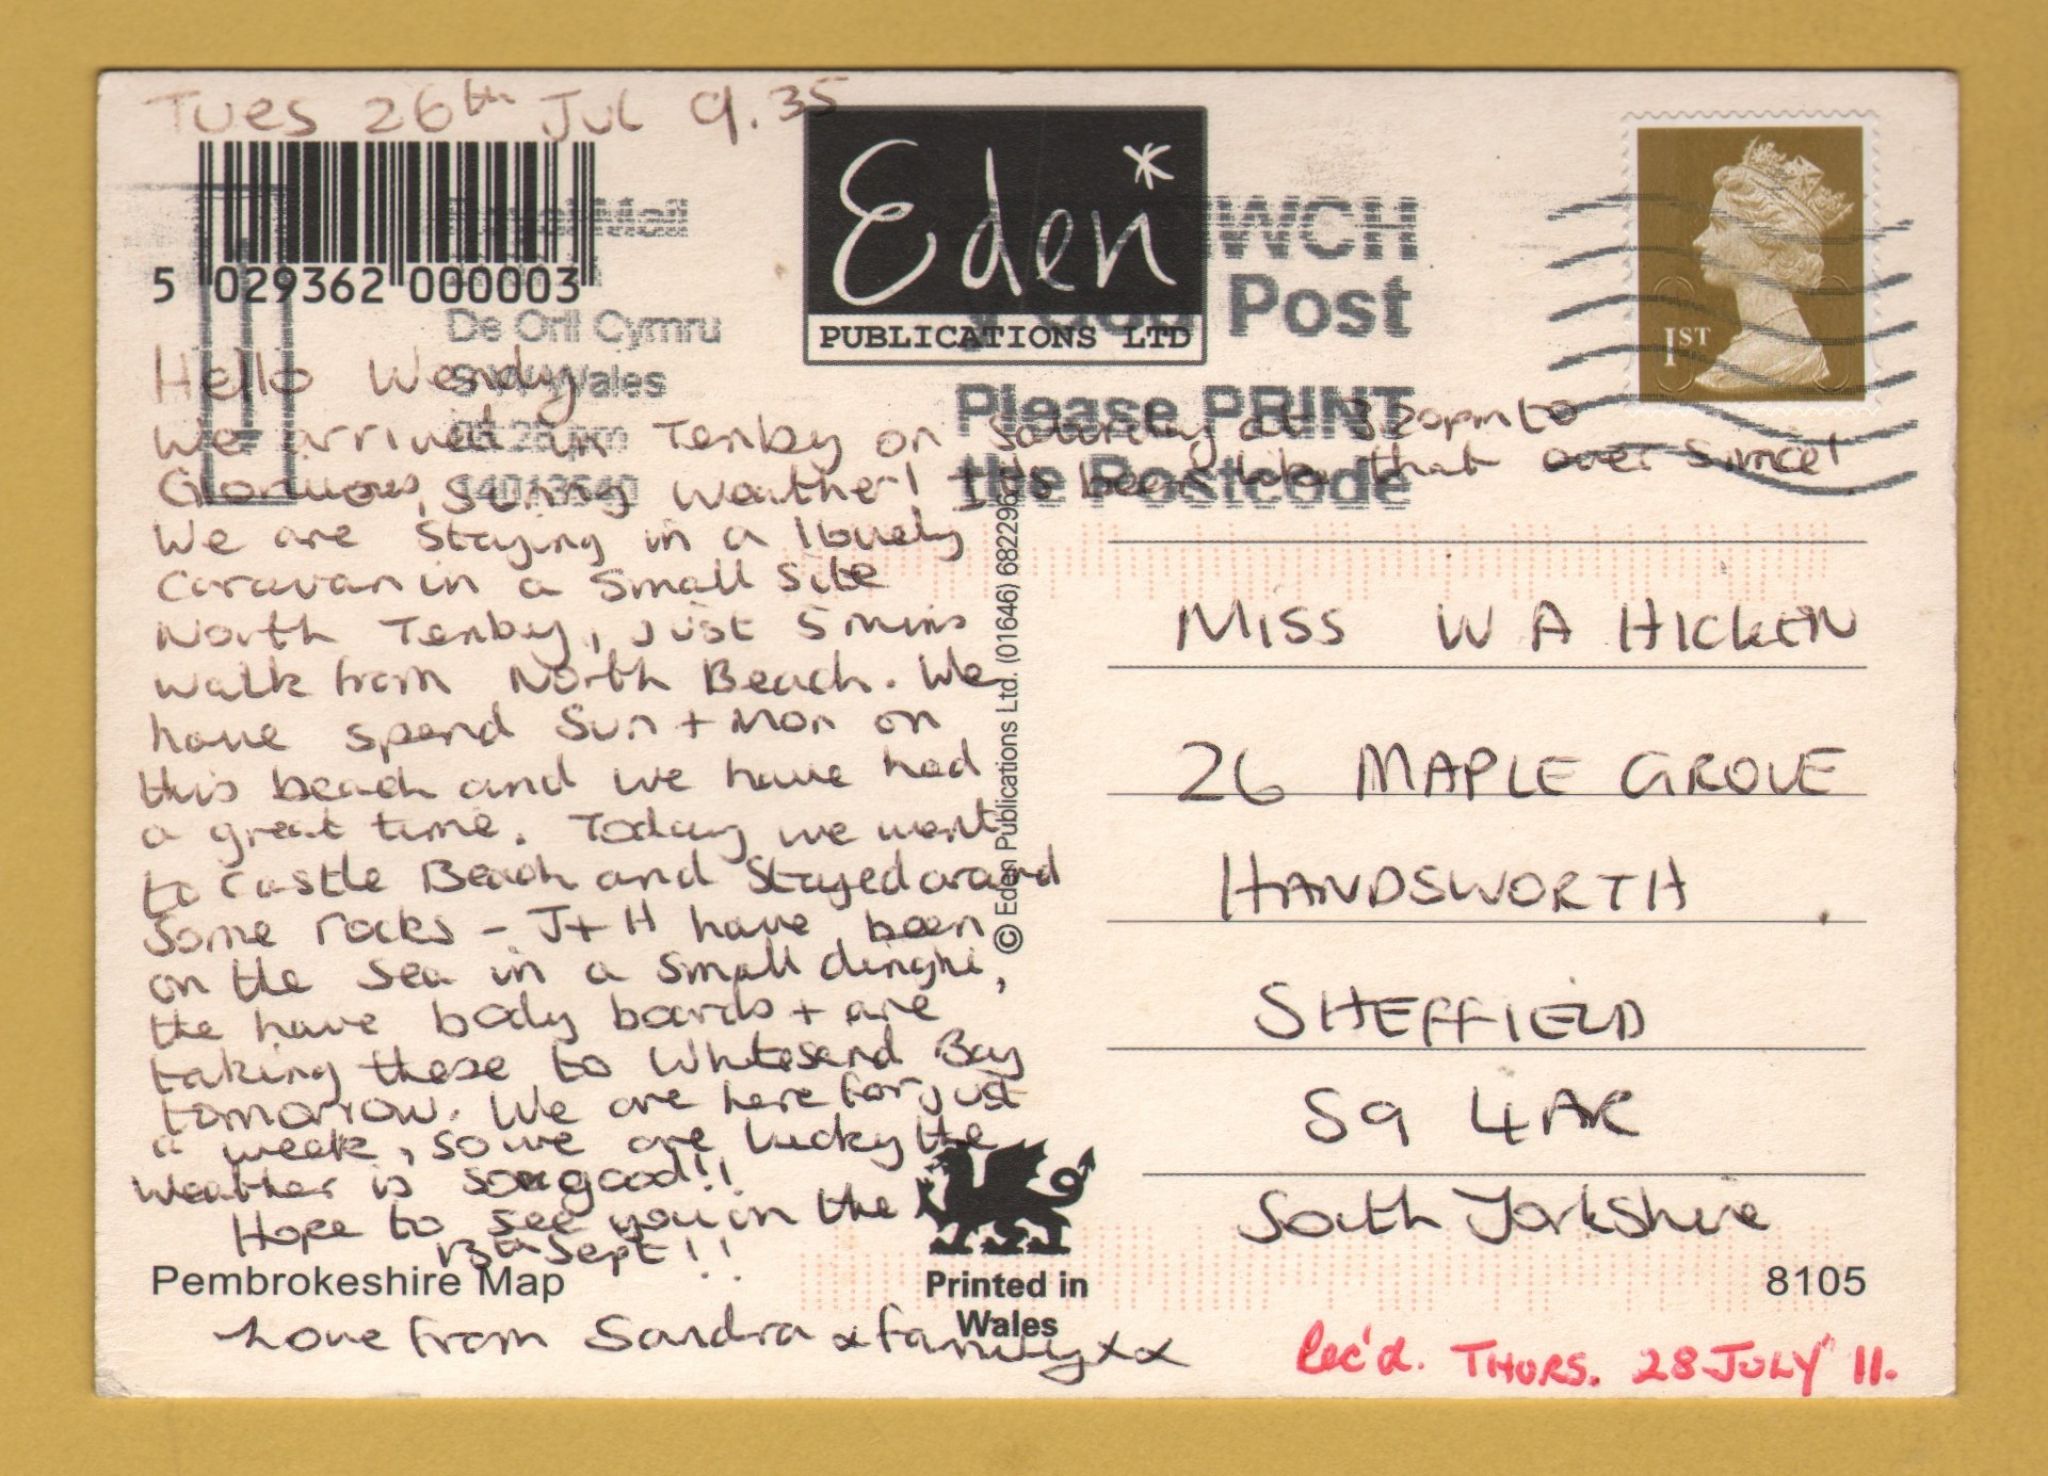 Tues 26th Jul 9.35
5 029362 000003
Eden*
PUBLICATIONS LTD
1ST
IWCH
Post
Please PRINT
the Postcode
Royal Mail
De Orll Cymru
Wales
Hello Wendy
We arrived in Tenby on Saturday at 3 20pm to
Glorious, Sunny weather! It's been like that over since!
We are staying in a lovely
caravan in a small site
North Tenby, just 5 mins
walk from North Beach. We
have spend Sun + Mon on
this beach and we have had
a great time. Today we went
to Castle Beach and stayed around
some rocks - J + H have been
on the sea in a small dinghi,
the have body boards + are
taking these to Whitesand Bay
tomorrow. We are here for just
a week, so we are lucky the
weather is so good!!
Hope to see you in the
13th Sept!!
Love from Sandra & family xx
© Eden Publications Ltd. (01646) 682296
MISS W A HICKEN
26 MAPLE GROVE
HANDSWORTH
SHEFFIELD
S9 4AR
South Yorkshire
Pembrokeshire Map
Printed in
Wales
8105
Rec'd. THURS. 28 JULY '11.